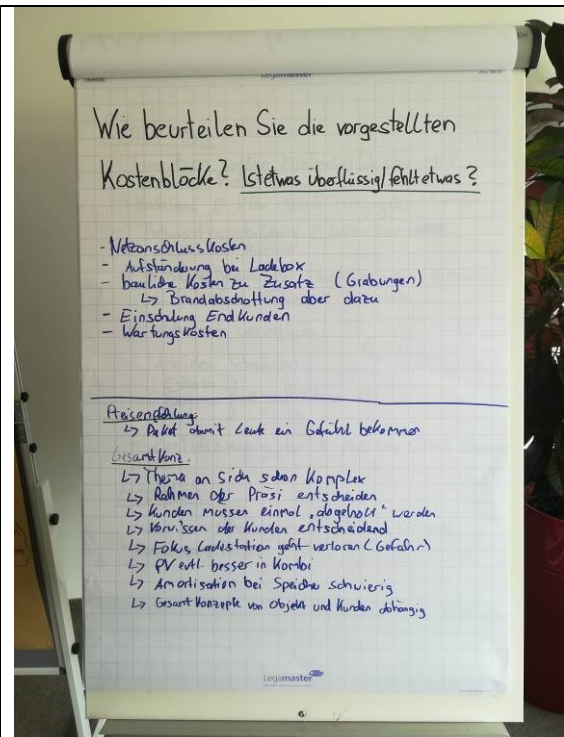 Legamaster
Wie beurteilen Sie die vorgestellten
Kostenblöcke? Ist etwas überflüssig/fehlt etwas?
- Netzanschlusskosten
- Aufständerung bei Ladebox
- bauliche Kosten zu Zusatz (Grabungen)
↳ Brandabschottung aber dazu
- Einschulung Endkunden
- Wartungskosten
Preisempfehlung:
↳ Paket damit Leute ein Gefühl bekommen
Gesamtkonz.
↳ Thema an Sich schon Komplex
↳ Rahmen der Präsi entscheiden
↳ Kunden müssen einmal „abgeholt" werden
↳ Vorwissen der Kunden entscheidend
↳ Fokus Ladestation geht verloren (Gefahr)
↳ PV evtl. besser in Kombi
↳ Amortisation bei Speicher schwierig
↳ Gesamt Konzepte von Objekt und Kunden abhängig
Legamaster